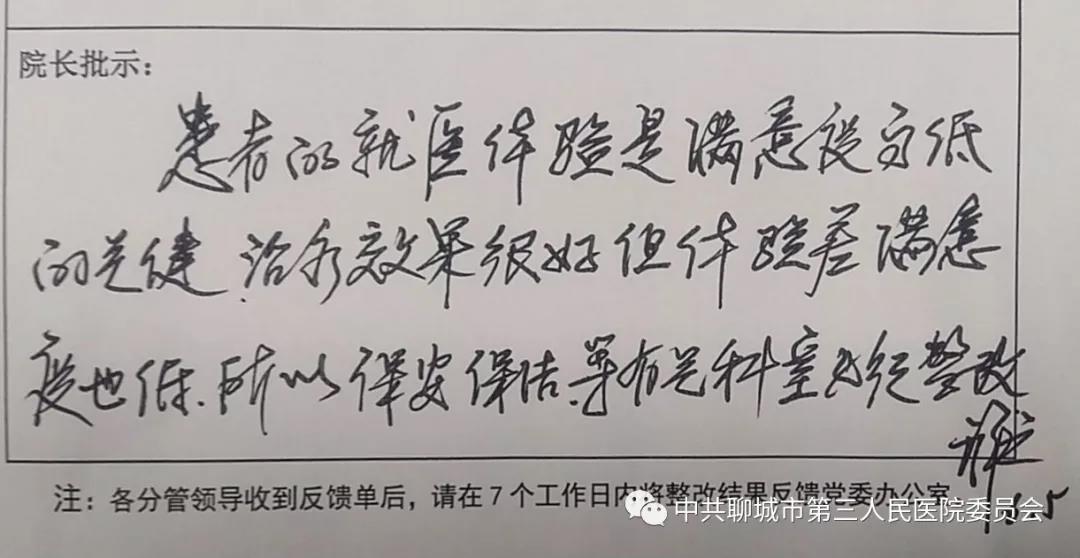 院长批示：
患者的就医体验是满意度高低
的关键.治疗效果很好但体验差满意
度也低.所以保安保洁.等有关科室必须整改
注：各分管领导收到反馈单后，请在7个工作日内将整改结果反馈党委办公室
中共聊城市第三人民医院委员会